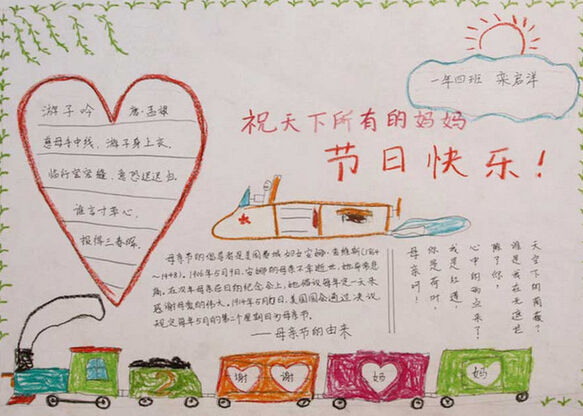 一年四班 栾启洋
祝天下所有的妈妈
节日快乐！
游子吟 唐·孟郊
慈母手中线，游子身上衣，
临行密密缝，意恐迟迟归，
谁言寸草心，
报得三春晖。
母亲节的倡导者是美国费城妇女安娜·查维斯(1864
～1948)。1906年5月9日，安娜的母亲不幸逝世，她非常悲
痛。在次年母亲忌日的纪念会上，她倡议每年定一天来
感谢母爱的伟大。1914年5月10日，美国国会通过决议
规定每年5月的第二个星期日为母亲节。
——母亲节的由来
母亲呵！
你是荷叶，
我是红莲，
心中的雨点来了
除了你，
谁是我在无遮拦
天空下的荫蔽？
2
谢 谢 妈 妈